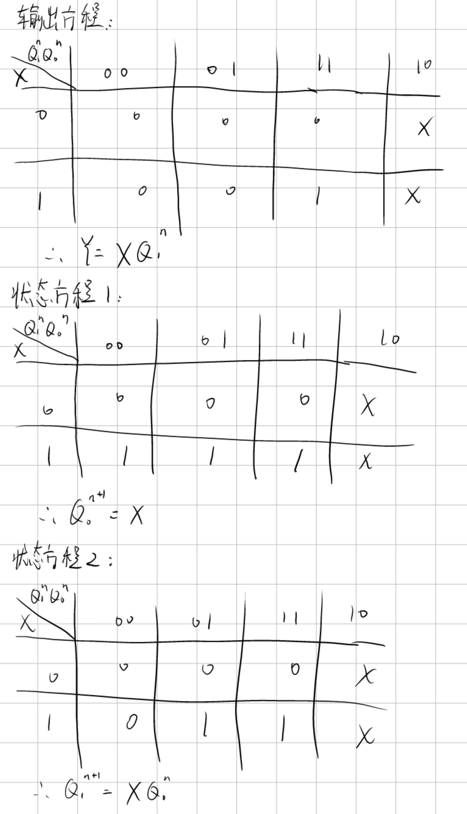 输出方程:
Q₁ⁿQ₀ⁿ
X 00 01 11 10
0 0 0 0 X
1 0 0 1 X
∴ Y = XQ₁ⁿ
状态方程1:
Q₁ⁿQ₀ⁿ
X 00 01 11 10
0 0 0 0 X
1 1 1 1 X
∴ Q₀ⁿ⁺¹ = X
状态方程2:
Q₁ⁿQ₀ⁿ
X 00 01 11 10
0 0 0 0 X
1 0 1 1 X
∴ Q₁ⁿ⁺¹ = XQ₀ⁿ